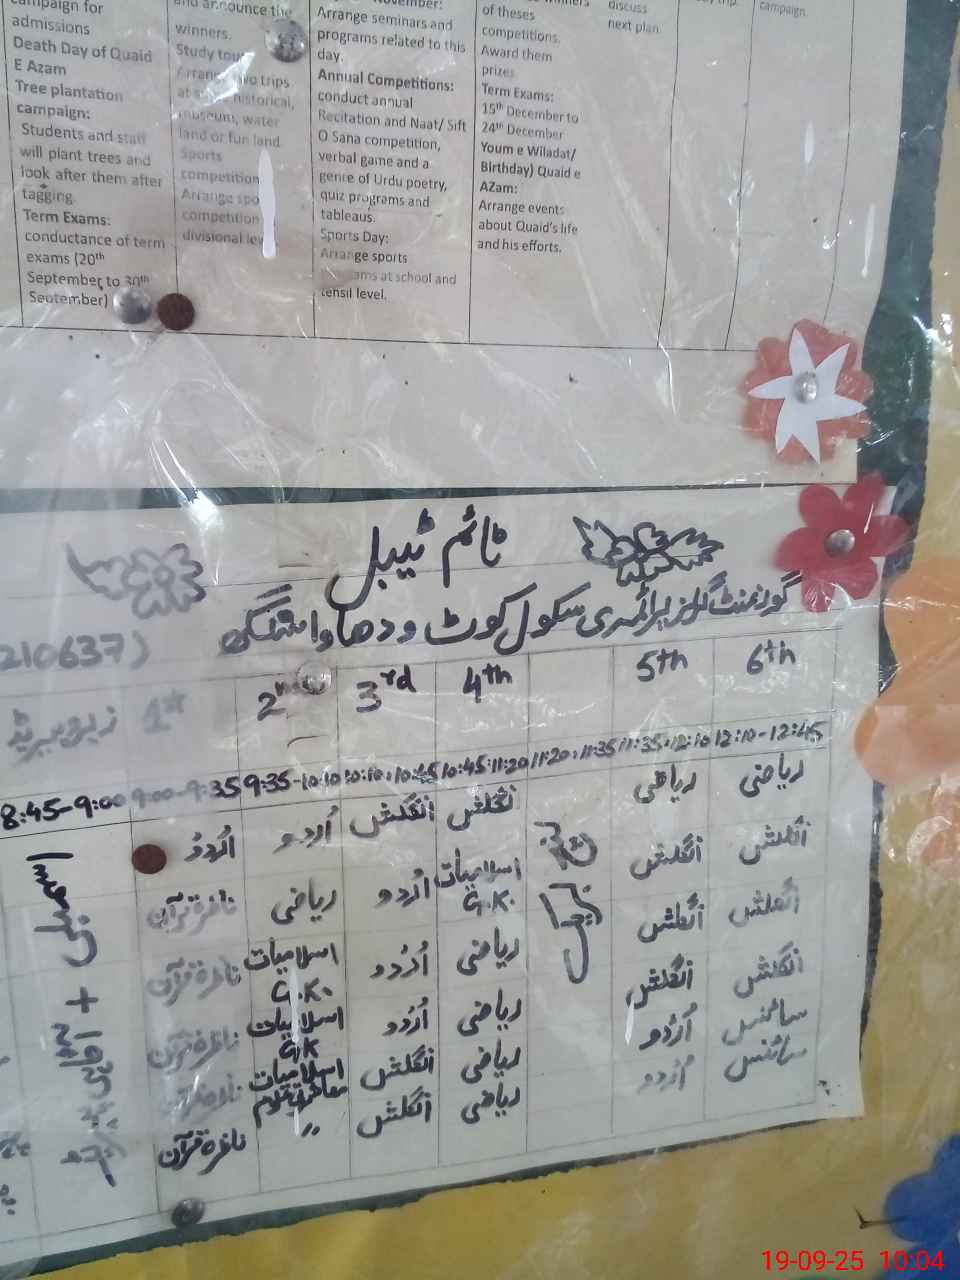 campaign for
admissions
Death Day of Quaid
E Azam
Tree plantation
campaign:
Students and staff
will plant trees and
look after them after
tagging.
Term Exams:
conductance of term
exams (20th
September to 30th
September)
and announce the
winners.
Study tour
Arrange two trips
at historical,
museum, water
land or fun land
Sports
competition
Arrange
competition
divisional level
November:
Arrange seminars and
programs related to this
day.
Annual Competitions:
conduct annual
Recitation and Naat/ Sift
O Sana competition,
verbal game and a
genre of Urdu poetry,
quiz programs and
tableaus.
Sports Day:
Arrange sports
at school and
tensil level.
winners
of theses
competitions.
Award them
prizes
Term Exams:
15th December to
24th December
Youm e Wiladat/
Birthday) Quaid e
AZam:
Arrange events
about Quaid's life
and his efforts.
discuss
next plan.
trip.
campaign.
ٹائم ٹیبل
گورنمنٹ گرلز پرائمری سکول کوٹ ودھاوا سنگھ
210637)
زیرو پیریڈ 1st 2nd 3rd 4th 5th 6th
8:45-9:00 9:00-9:35 9:35-10:10 10:10-10:45 10:45-11:20 11:20-11:35 11:35-12:10 12:10-12:45
اُردُو اُردو انگلش انگلش ریاضی ریاضی
ناظرہ قرآن ریاضی اُردو اسلامیات G.K. انگلش انگلش
ناظرہ قرآن اسلامیات G.K. اُردُو ریاضی انگلش انگلش
ناظرہ قرآن اسلامیات GK اُردُو ریاضی انگلش انگلش
ناظرہ قرآن اسلامیات انگلش ریاضی اُردُو سائنس
ناظرہ قرآن 〃 انگلش ریاضی اُردو سائنس
اسمبلی +
تفریح
19-09-25 10:04